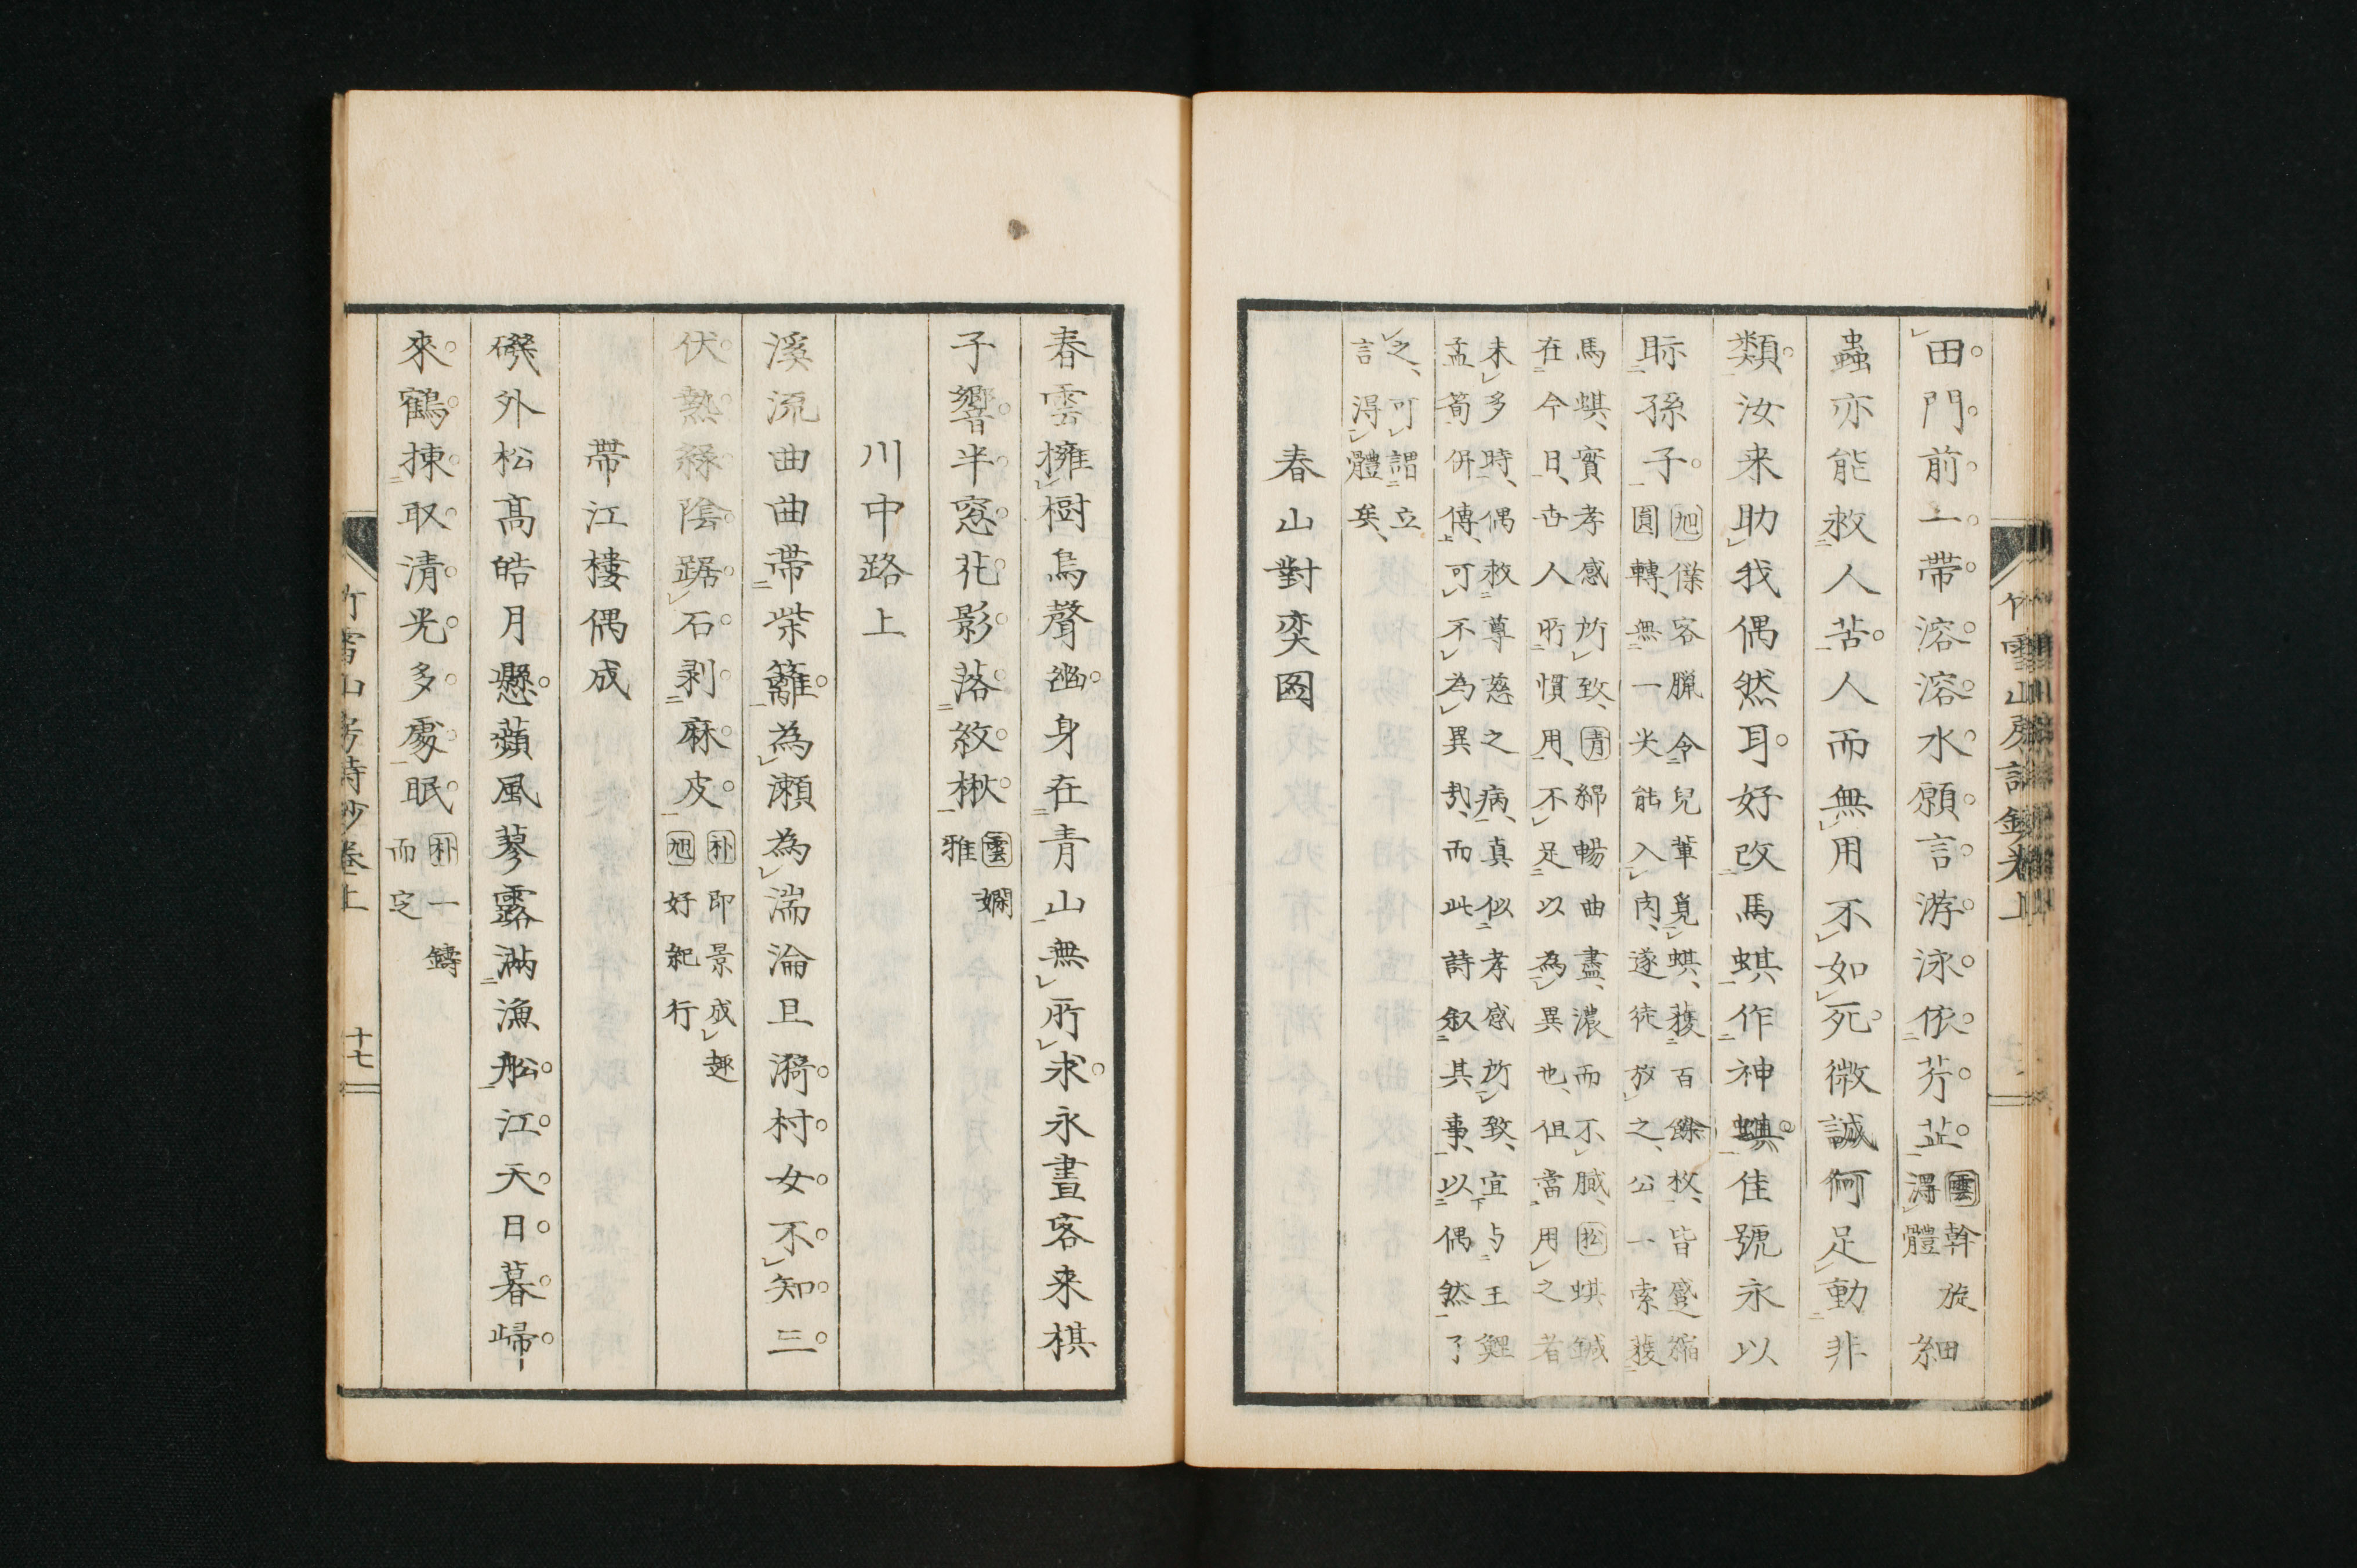 田門前一帶溶溶水願言游泳依芹芷 雲幹旋細
得體
蟲亦能救人苦人而無用不如死微誠何足動非
類汝来助我偶然耳好改馬蜞作神蜞佳號永以
眎孫子 旭僕客臘令兒輩覓蜞獲百餘枚皆蹙縮
圓轉無一尖能入肉遂徒放之公一索獲
馬蜞實孝感所致 青綿暢曲盡濃而不膩 松蜞鍼
在今日世人所慣用不足以為異也但當用之者
未多時偶救尊慈之病真似孝感所致宜与王鯉
孟筍併傳可不為異哉而此詩叙其事以偶然了
之可謂立
言得體矣
春山對奕圖
竹雪山房詩鈔卷上
春雲擁樹鳥聲幽身在青山無所求永晝客来棋
子響半窓花影落紋楸 雲嫻
雅
川中路上
溪流曲曲帶柴籬為瀬為湍淪且漪村女不知三
伏熱綠陰踞石剥麻皮 朴即景成趣
旭好紀行
帶江樓偶成
磯外松高皓月懸蘋風蓼露滿漁船江天日暮歸
來鶴揀取清光多處眠 朴一鑄
而定
竹雪山房詩鈔卷上 十七